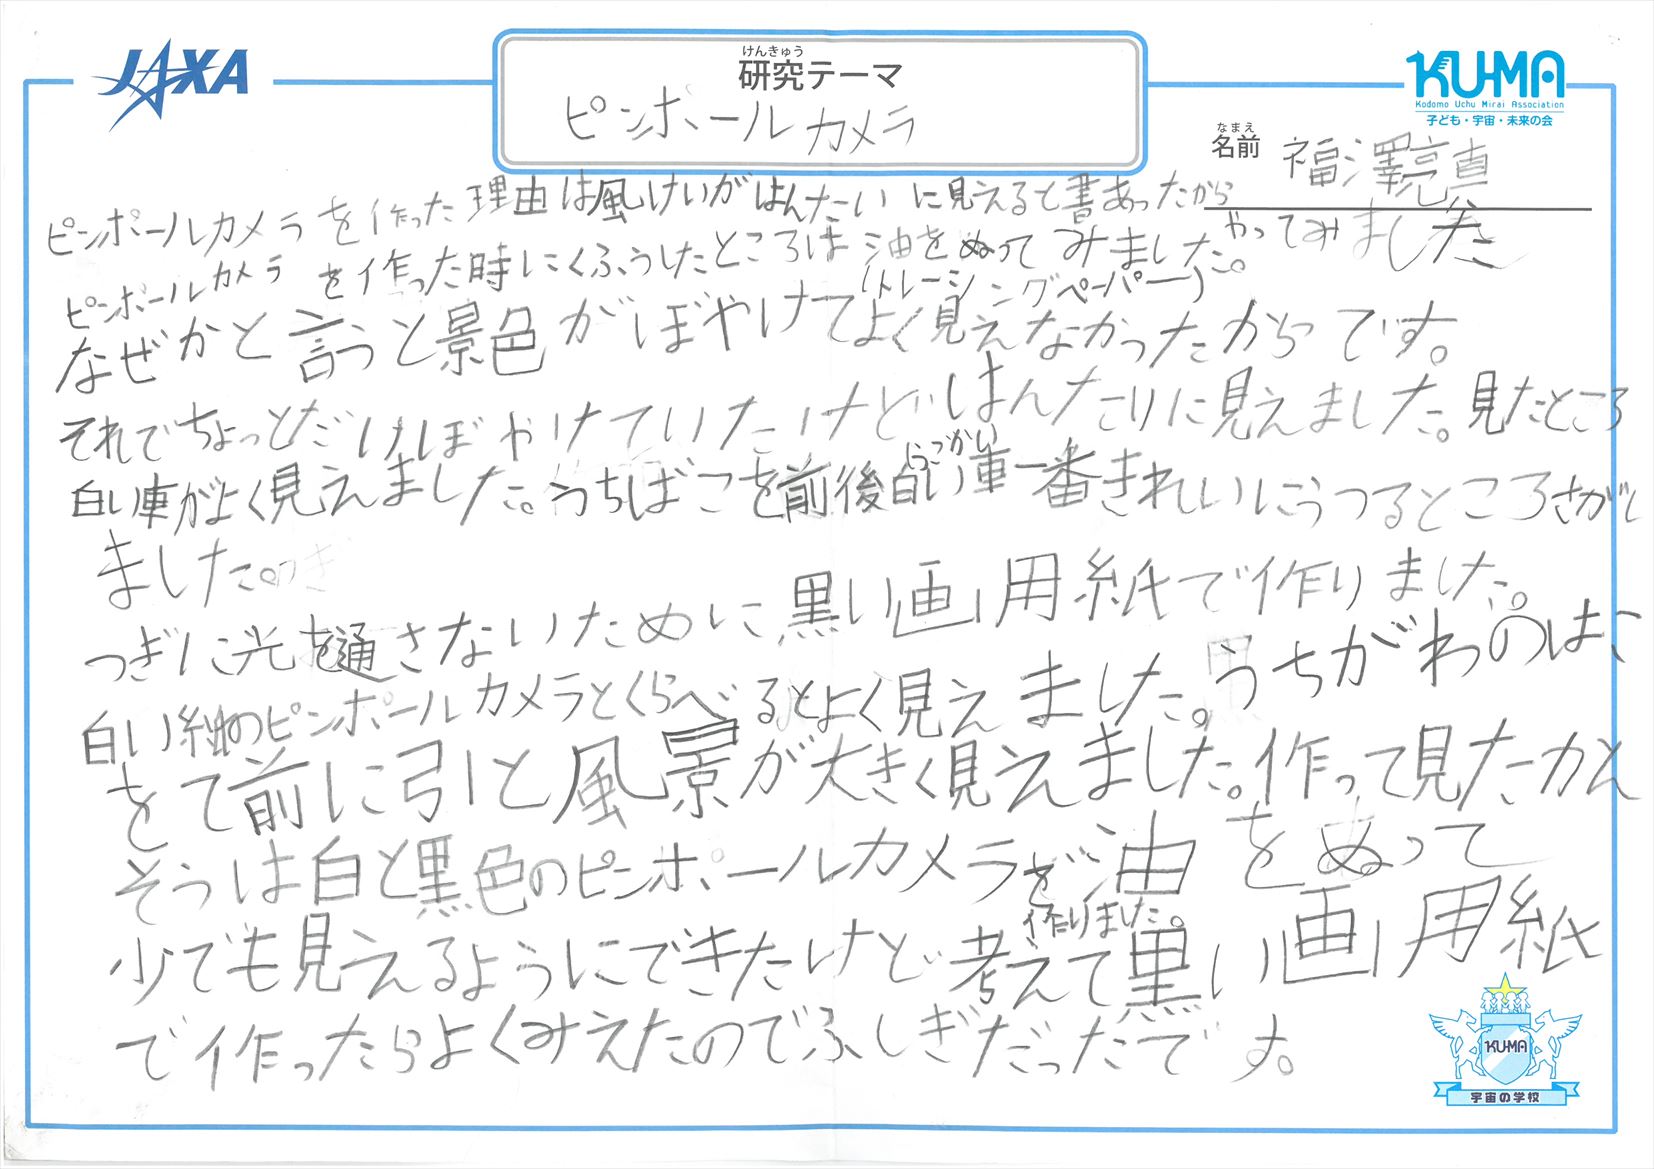 JAXA
けんきゅう
研究テーマ
ピンポールカメラ
KU-MA
Kodomo Uchu Mirai Association
子ども・宇宙・未来の会
なまえ
名前 福澤亮真
ピンポールカメラを作った理由は風けいがはんたいに見えると書あったから
やってみました
ピンポールカメラを作った時にくふうしたところは油をぬってみました。
(トレーシングペーパー)
なぜかと言うと景色がぼやけてよく見えなかったからです。
それでちょっとだけぼやけていたけどはんたいに見えました。見たところ
白い車がよく見えました。うちばこを前後白い車一番きれいにうつるところさがし
ました。
つぎに光を通さないために黒い画用紙で作りました。
白い紙のピンポールカメラとくらべるとよく見えました。うちがわのはこ
をて前に引と風景が大きく見えました。作って見たかん
そうは白と黒色のピンポールカメラを油をぬって
作りました。
少でも見えるようにできたけど考えて黒い画用紙
で作ったらよくみえたのでふしぎだったです。
KU-MA
宇宙の学校